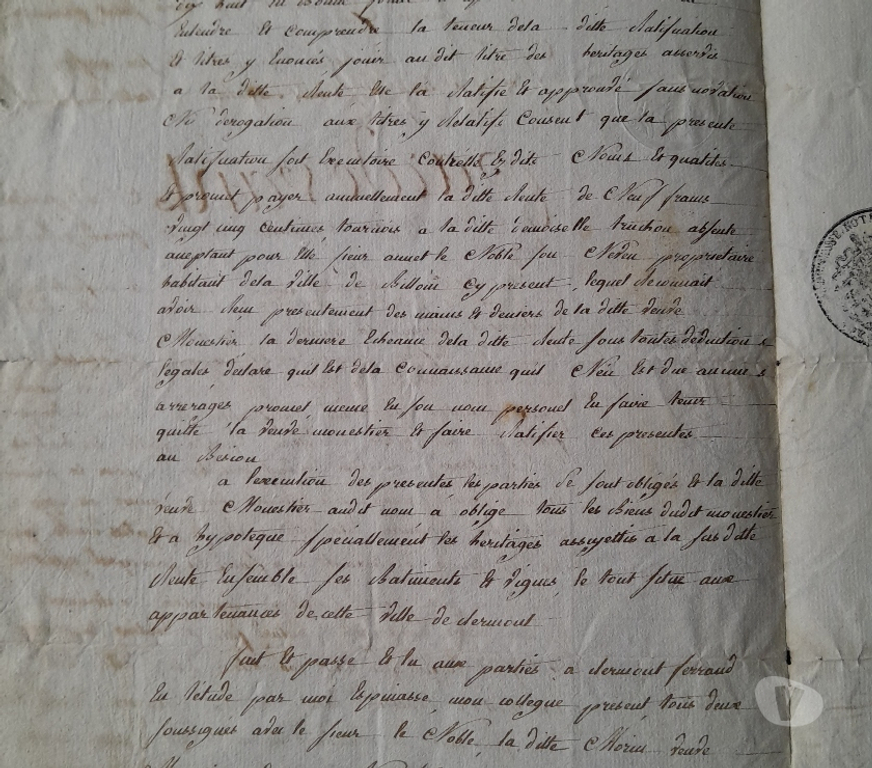 Entendre et comprendre la teneur dela ditte Ratifination
et titres y Enoncés jouir au dit titre des heritages asservis
a la ditte Rente Elle la Ratifie Et approuve sans novation
Ni derogation aux titres y Relatifs Consent que la presente
Ratifination soit Executoire Contr'elle Esdits Noms Et qualites
Et promet payer annuellement la ditte Rente de Neuf francs
vingt cinq centimes tournois a la ditte demoiselle truchon absente
aceptant pour Elle sieur annet le Noble son Neveu proprietaire
habitant dela ville de Billom cy present, lequel Reconnait
avoir Reçu presentement des mains et deniers de la ditte veuve
Monestier la derniere Echeance dela ditte Rente sous toutes déductions
legales déclare quil Est dela Connaissance quil N'en Est due aucuns
arrerages promet meme En son nom personel En faire tenir
quitte la veuve monestier Et faire Ratifier ces presentes
au Besoin
a l'execution des presentes les parties se sont obligés et la ditte
veuve Monestier audit nom a obligé tous les Biens dudit monestier
Et a hypoteque spéciallement les heritages assujettis a la susditte
Rente Ensemble ses Batiments Et vignes le tout situé aux
appartenances de cette ville de clermont
fait Et passé Et lu aux parties a clermont ferrand
En l'étude par moi Espinasse mon collegue present, tous deux
soussignés avec le sieur le Noble, la ditte Morin veuve